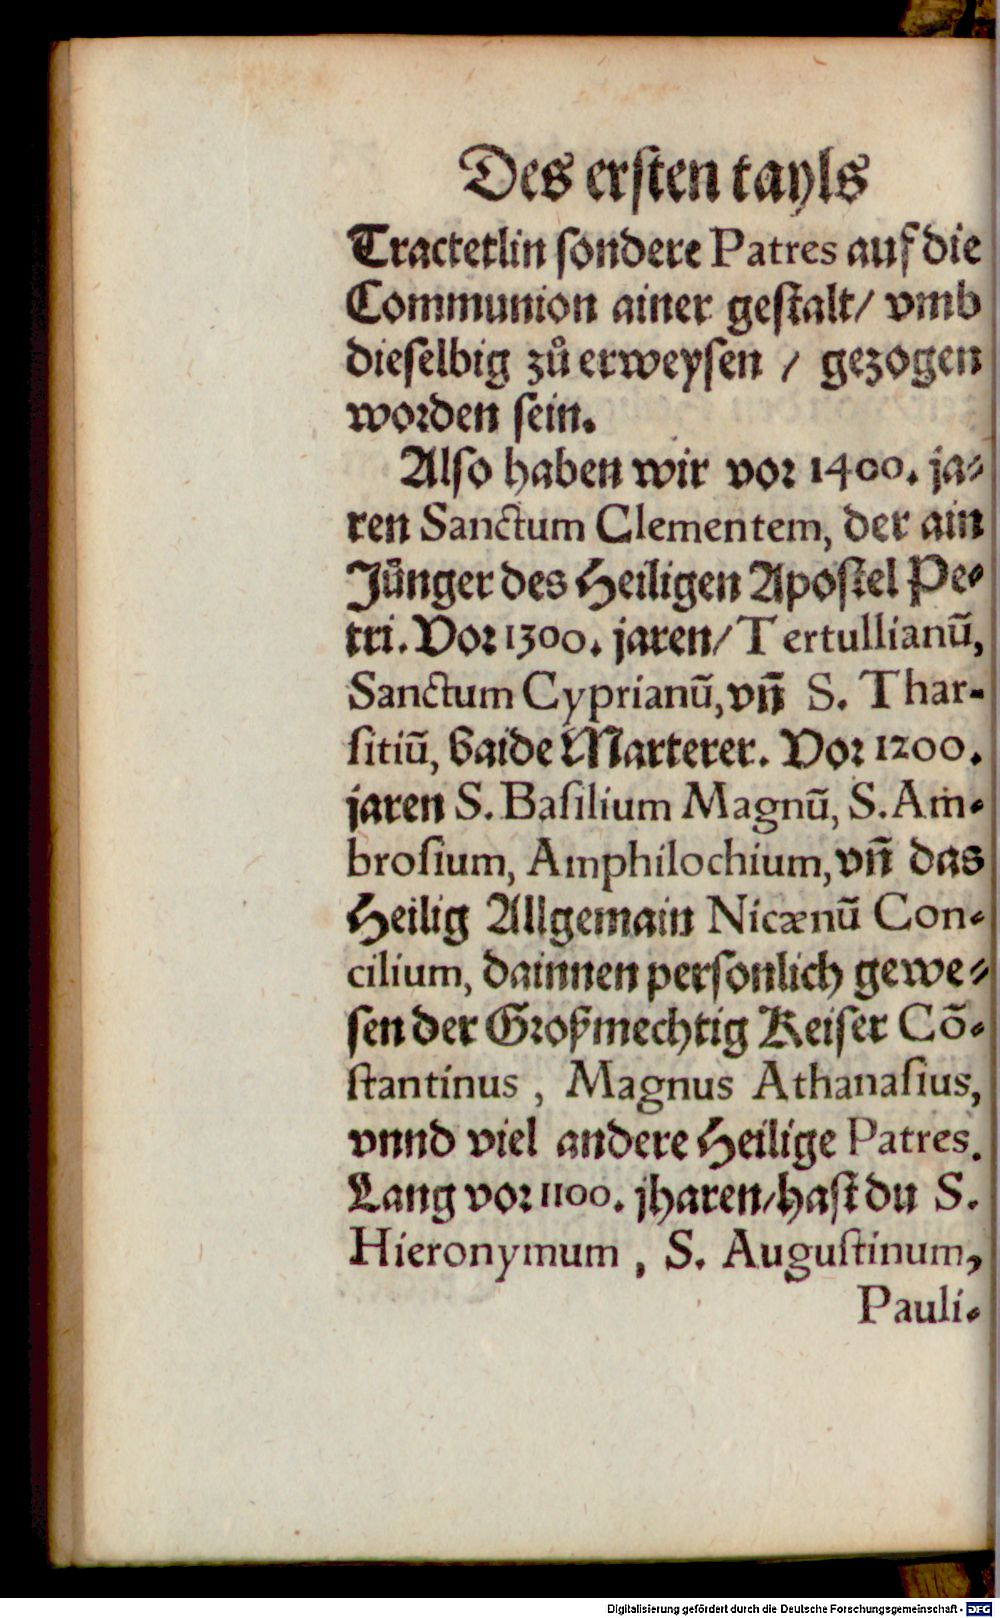 Des ersten tayls
Tractetlin sondere Patres auf die
Communion ainer gestalt/ vmb
dieselbig zů erweysen / gezogen
worden sein.
Also haben wir vor 1400. ja⸗
ren Sanctum Clementem, der ain
Jünger des Heiligen Apostel Pe⸗
tri. Vor 1300. jaren/ Tertullianũ,
Sanctum Cyprianũ, vñ S. Thar-
sitiũ, baide Marterer. Vor 1200.
jaren S. Basilium Magnũ, S. Am⸗
brosium, Amphilochium, vñ das
Heilig Allgemain Nicænũ Con⸗
cilium, dainnen personlich gewe⸗
sen der Großmechtig Keiser Cõ⸗
stantinus, Magnus Athanasius,
vnnd viel andere Heilige Patres.
Lang vor 1100. jharen/ hast du S.
Hieronymum, S. Augustinum,
Pauli⸗
Digitalisierung gefördert durch die Deutsche Forschungsgemeinschaft - DFG